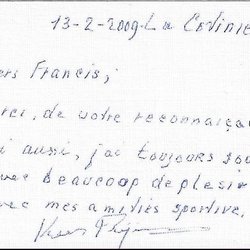 13-2-2009. La
ers Francis;
rci, de votre reconnaiça
i aussi, j'ai toujours
vec beaucoup de plesir
vec mes amitiés sportive.